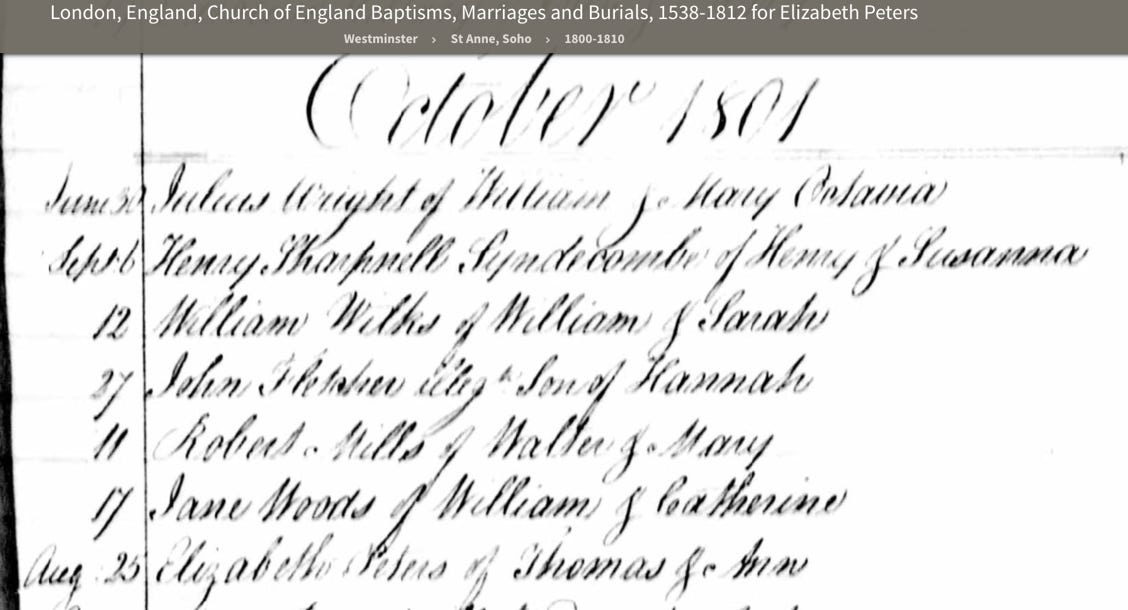 London, England, Church of England Baptisms, Marriages and Burials, 1538-1812 for Elizabeth Peters
Westminster › St Anne, Soho › 1800-1810
October 1801
June 30 Julius Wright of William & Mary Octavia
Sept. 6 Henry Sharpnell Syndecombe of Henry & Susanna
12 William Wilks of William & Sarah
27 John Fletcher illeg. Son of Hannah
11 Robert Mills of Walter & Mary
17 Jane Woods of William & Catherine
Aug 25 Elizabeth Peters of Thomas & Ann